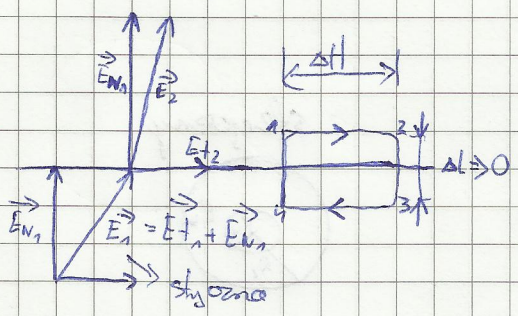 ΔH
E⃗N₁
E⃗₂
1 2
Et₂
Δl⇒0
4 3
E⃗N₁
E⃗₁ = E⃗t₁ + E⃗N₁
styczna